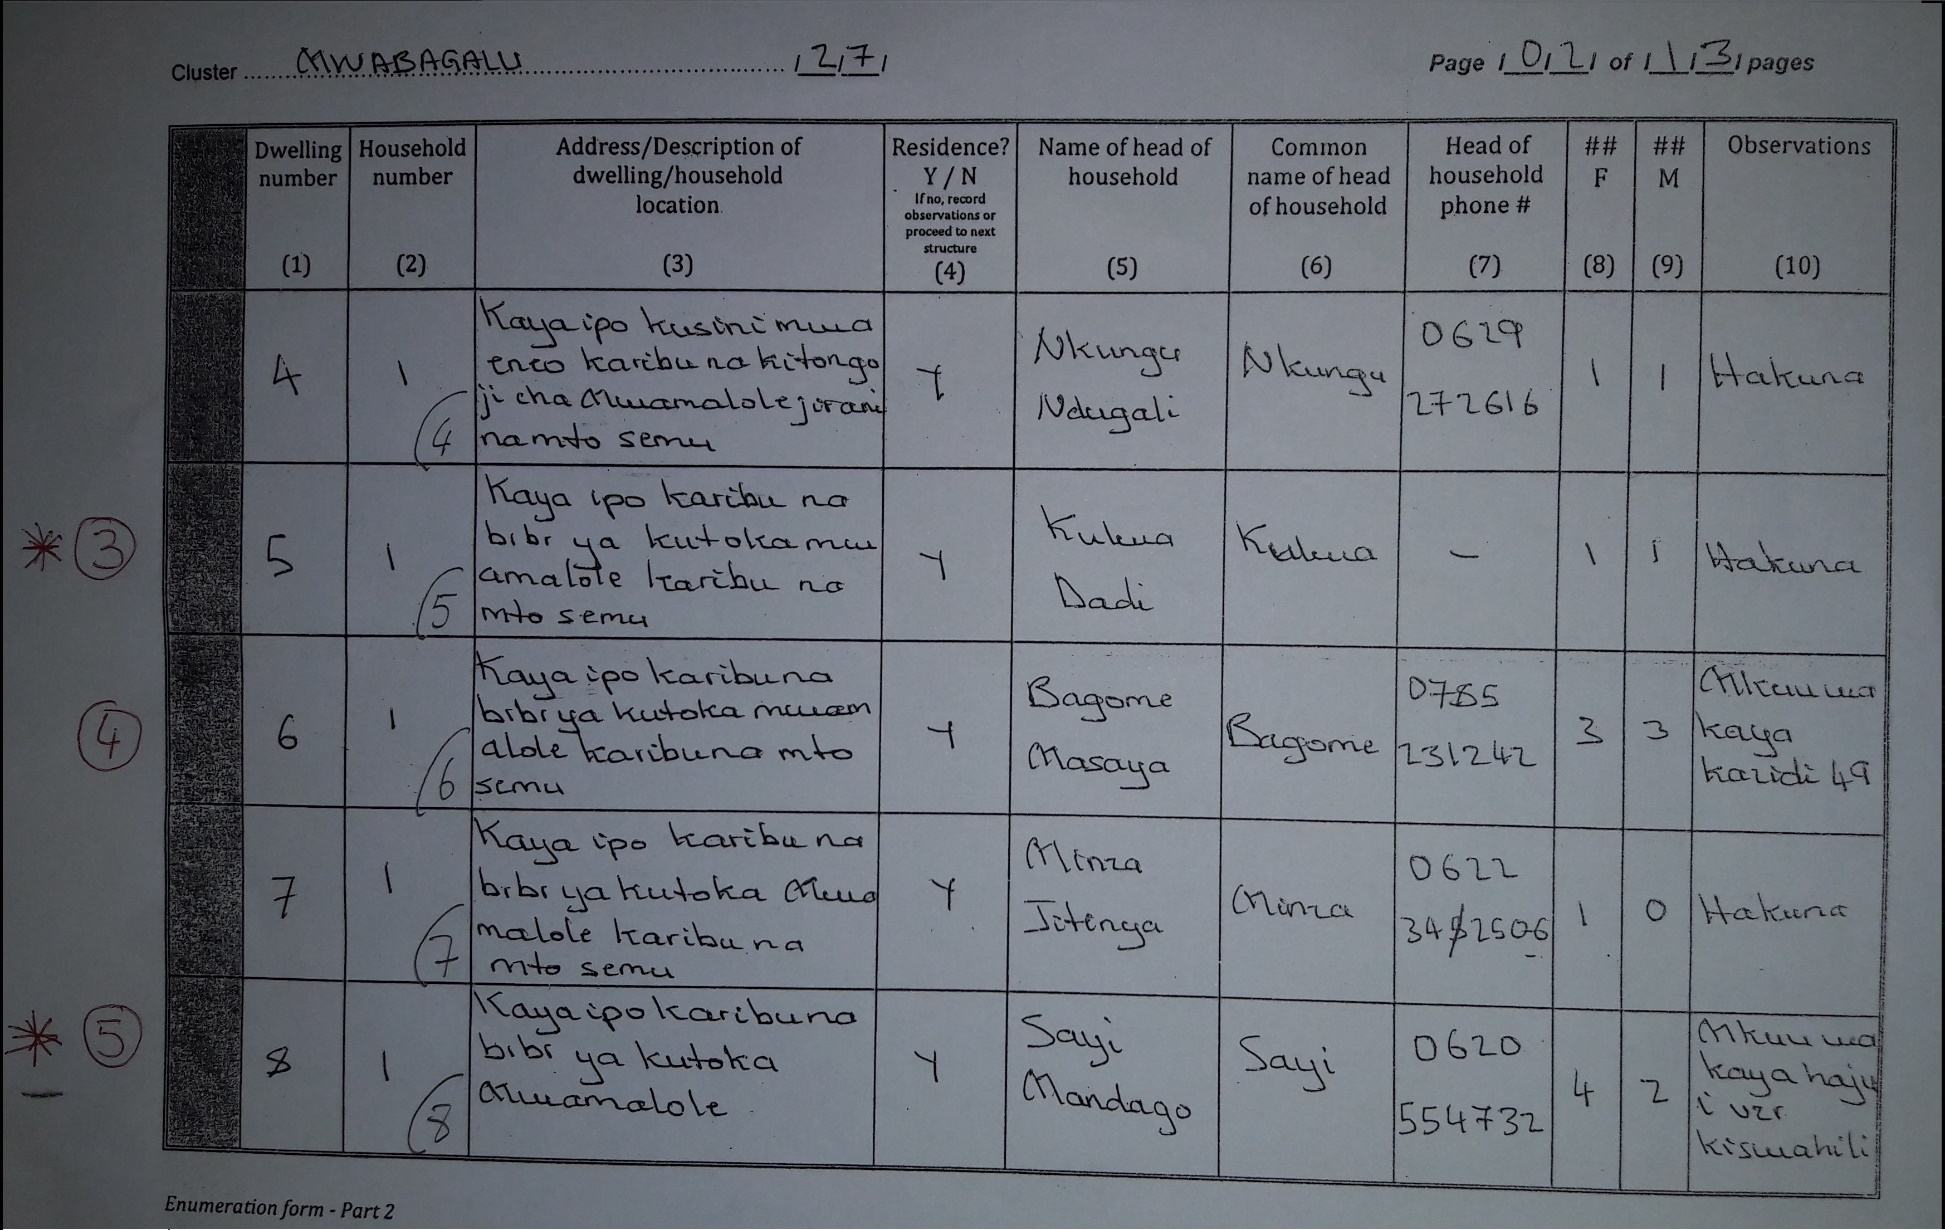 Cluster MWABAGALU 27 Page 02 of 13 pages
Dwelling number (1)
Household number (2)
Address/Description of dwelling/household location (3)
Residence? Y / N If no, record observations or proceed to next structure (4)
Name of head of household (5)
Common name of head of household (6)
Head of household phone # (7)
## F (8)
## M (9)
Observations (10)
4
1
4
Kaya ipo kusini mwa
eneo karibu na kitongo
ji cha Mwamalole jirani
na mto semu
Y
Nkungu
Ndugali
Nkungu
0629
272616
1
1
Hakuna
* 3
5
1
5
Kaya ipo karibu na
bibi ya kutoka mw
amalole karibu na
mto semu
Y
Kulwa
Dadi
Kulwa
-
1
1
Hakuna
4
6
1
6
Kaya ipo karibu na
bibi ya kutoka mwam
alole karibu na mto
semu
Y
Bagome
Masaya
Bagome
0785
231242
3
3
Mkuu wa
kaya
kazidi 49
7
1
7
Kaya ipo karibu na
bibi ya kutoka Mwa
malole karibu na
mto semu
Y
Minza
Jitenga
Minza
0622
342506
1
0
Hakuna
* 5
8
1
8
Kaya ipo karibu na
bibi ya kutoka
Mwamalole
Y
Sayi
Mandago
Sayi
0620
554732
4
2
Mkuu wa
kaya haju
i vzr
kiswahili
Enumeration form - Part 2